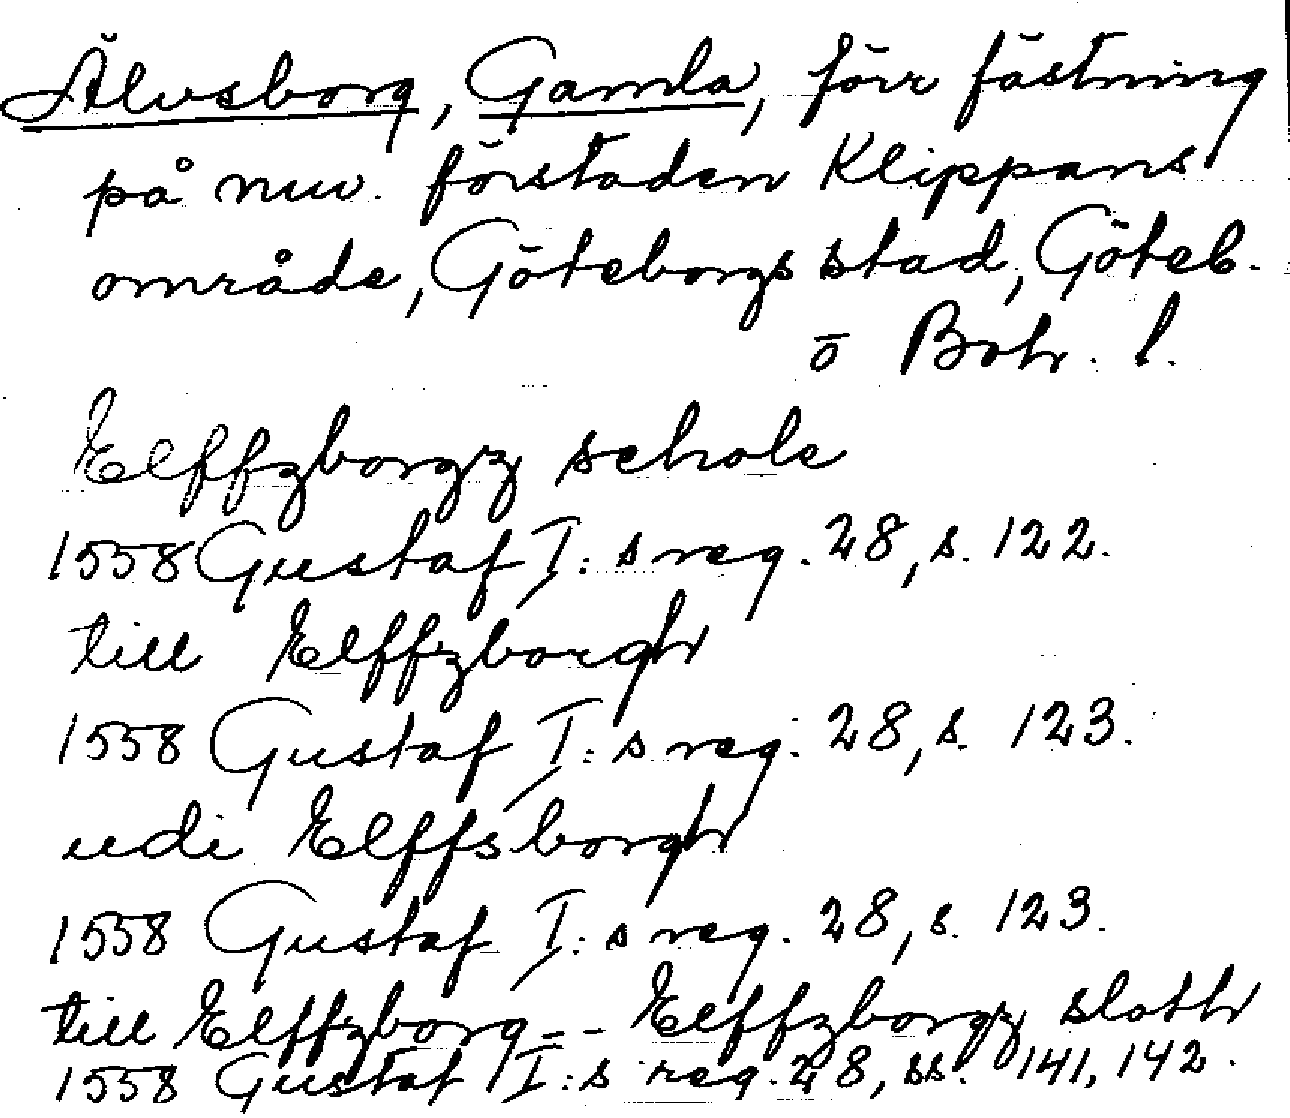 Älvsborg, Gamla, förr fästning
på nuv. förstaden Klippans
område, Göteborgs stad, Göteb.
o Boh. l.
Elffzborgz schole
1558 Gustaf I:s reg. 28, s. 122.
till Elffzborgh
1558 Gustaf I:s reg. 28, s. 123.
udi Elffsborgh
1558 Gustaf I:s reg. 28, s. 123.
till Elffzborg -- Elffzborgz sloth
1558 Gustaf I:s reg. 28, ss. 141, 142.